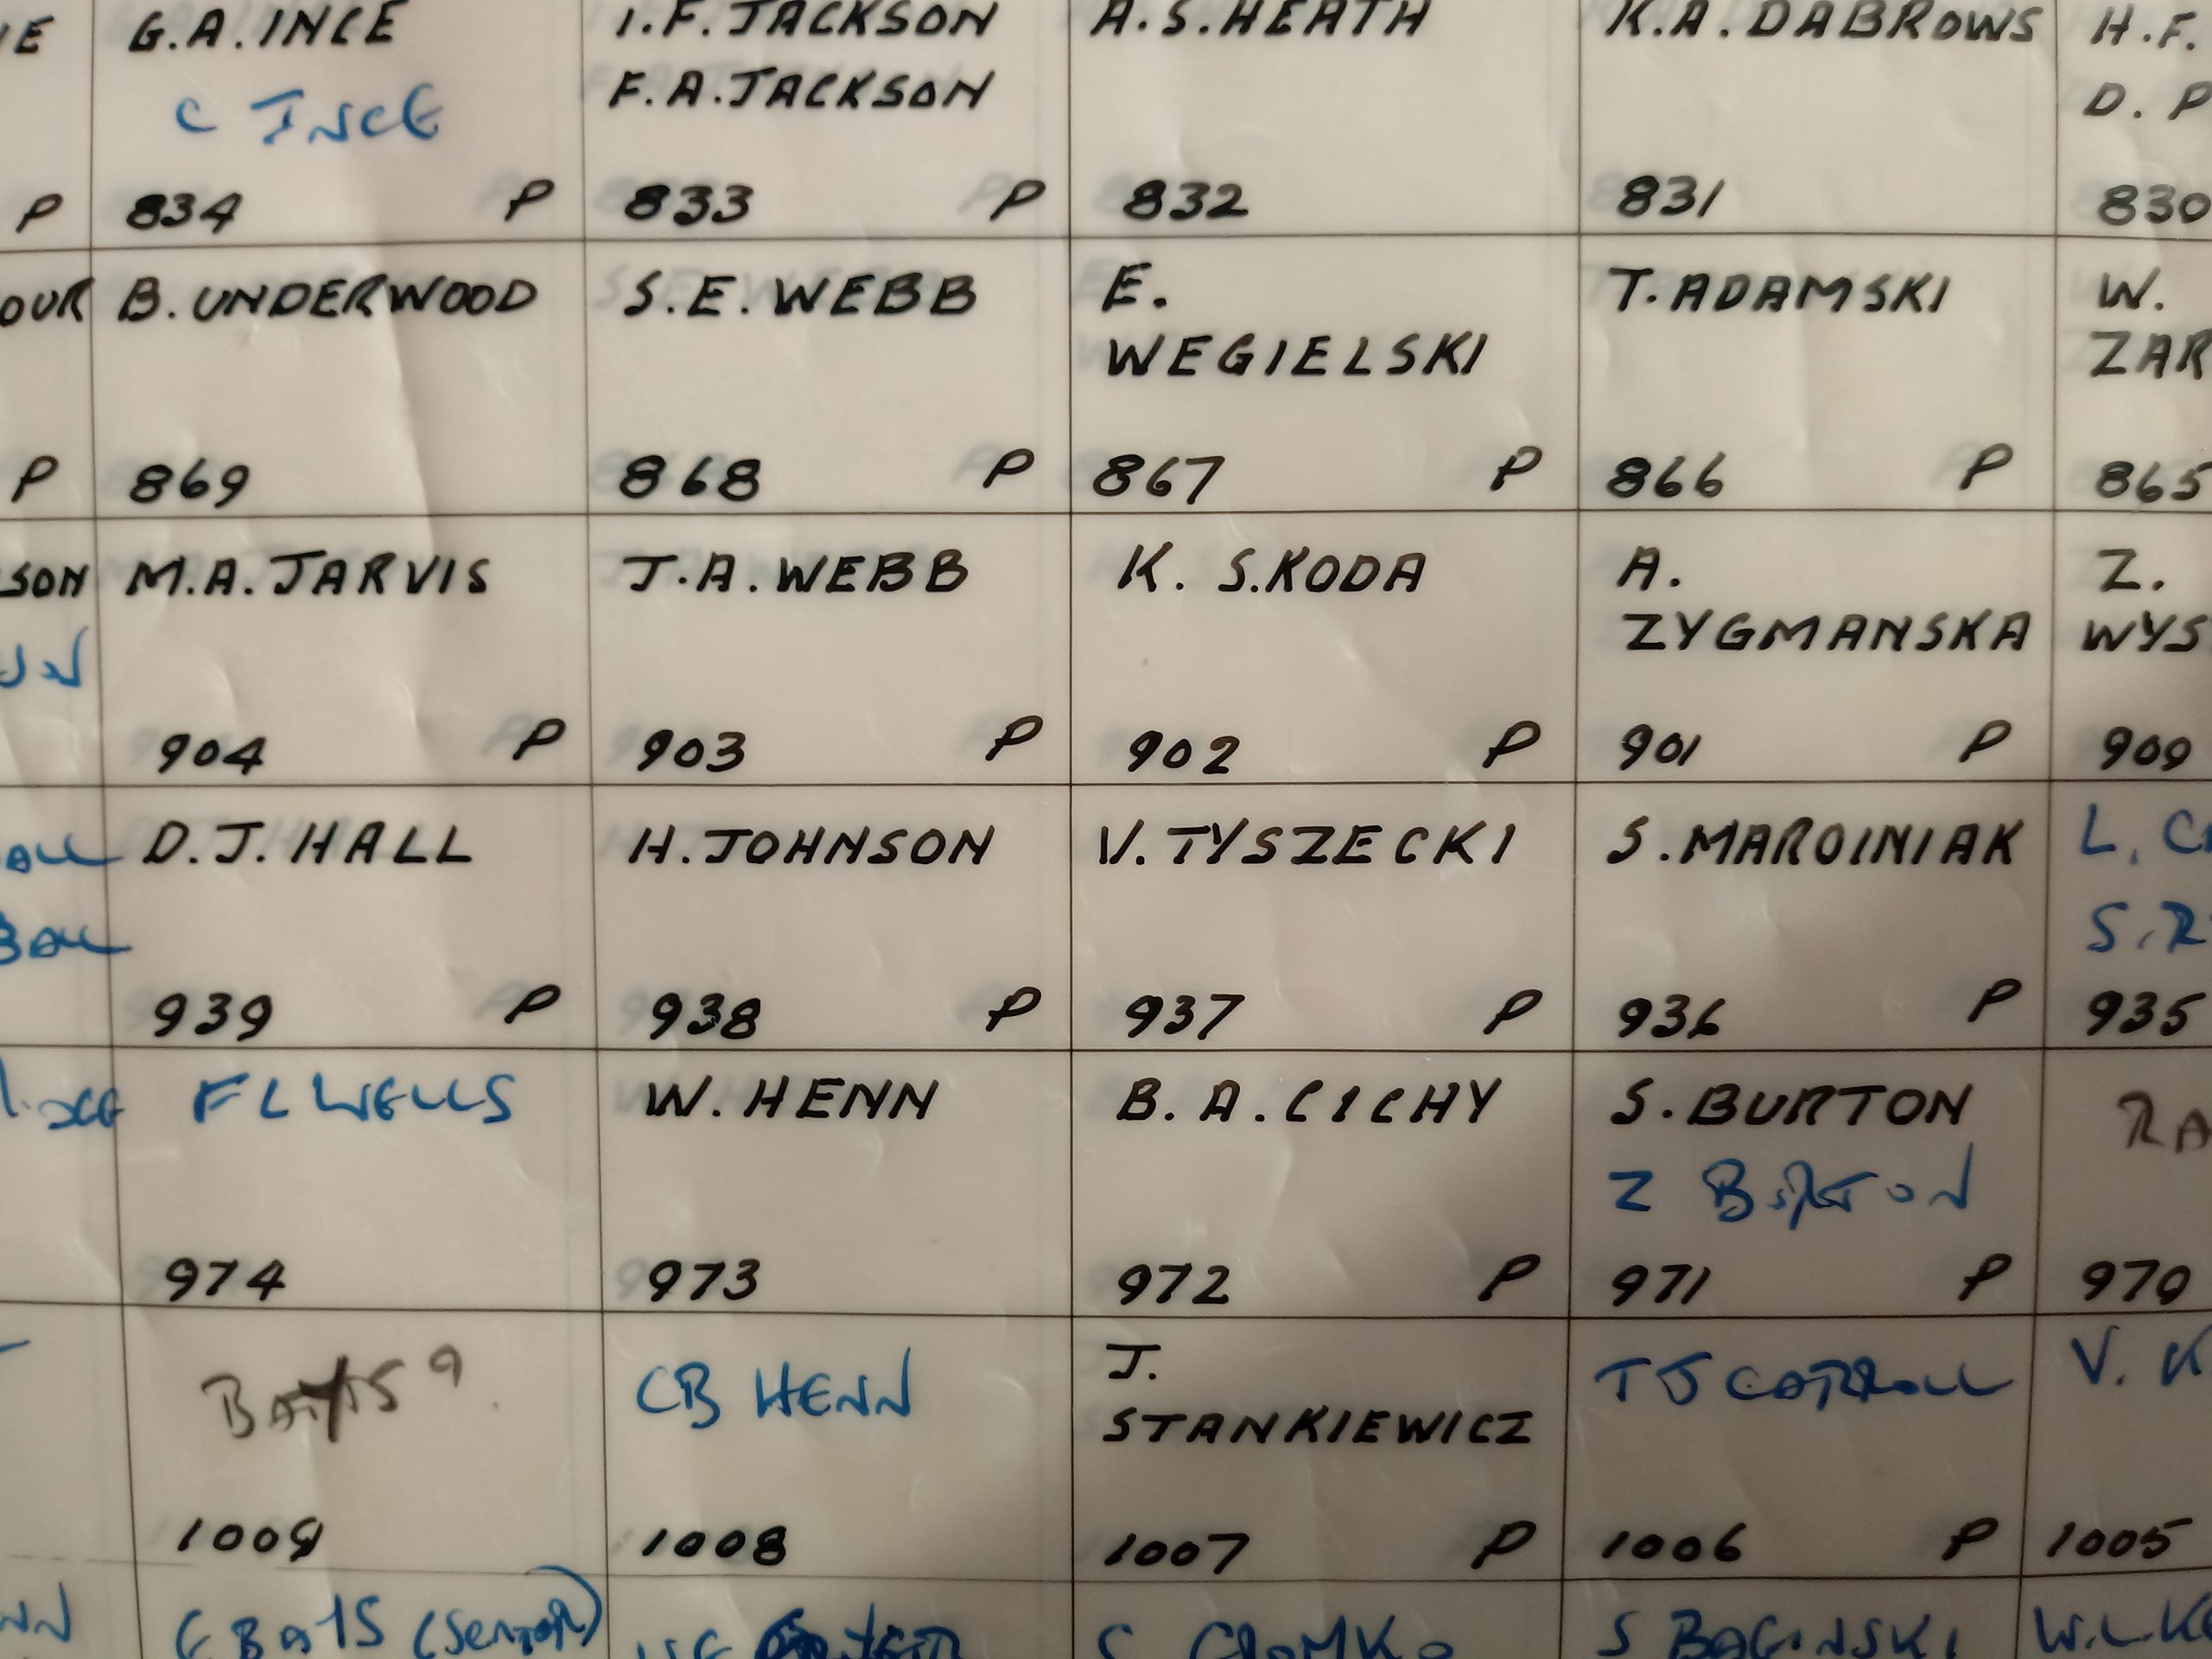 G.A.INCE
C INCE
834 P
I.F.JACKSON
F.A.JACKSON
833 P
A.S.HEATH
832
K.A.DABROWS
831
H.F.
D.P
830
P
OUR
B.UNDERWOOD
869
S.E.WEBB
868 P
E.
WEGIELSKI
867 P
T.ADAMSKI
866 P
W.
ZAR
865
P
SON
M.A.JARVIS
904 P
J.A.WEBB
903 P
K. S.KODA
902 P
A.
ZYGMANSKA
901 P
Z.
WYS
909
D.J.HALL
939 P
H.JOHNSON
938 P
V.TYSZECKI
937 P
S.MAROINIAK
936 P
L.C
S.R
935
F L WELLS
974
W.HENN
973
B.A.CICHY
972 P
S.BURTON
Z BURTON
971 P
RA
970
1009
CB HENN
1008
J.
STANKIEWICZ
1007 P
T J CARROLL
1006 P
V. K
1005
(SENIOR)
S BAGINSKI